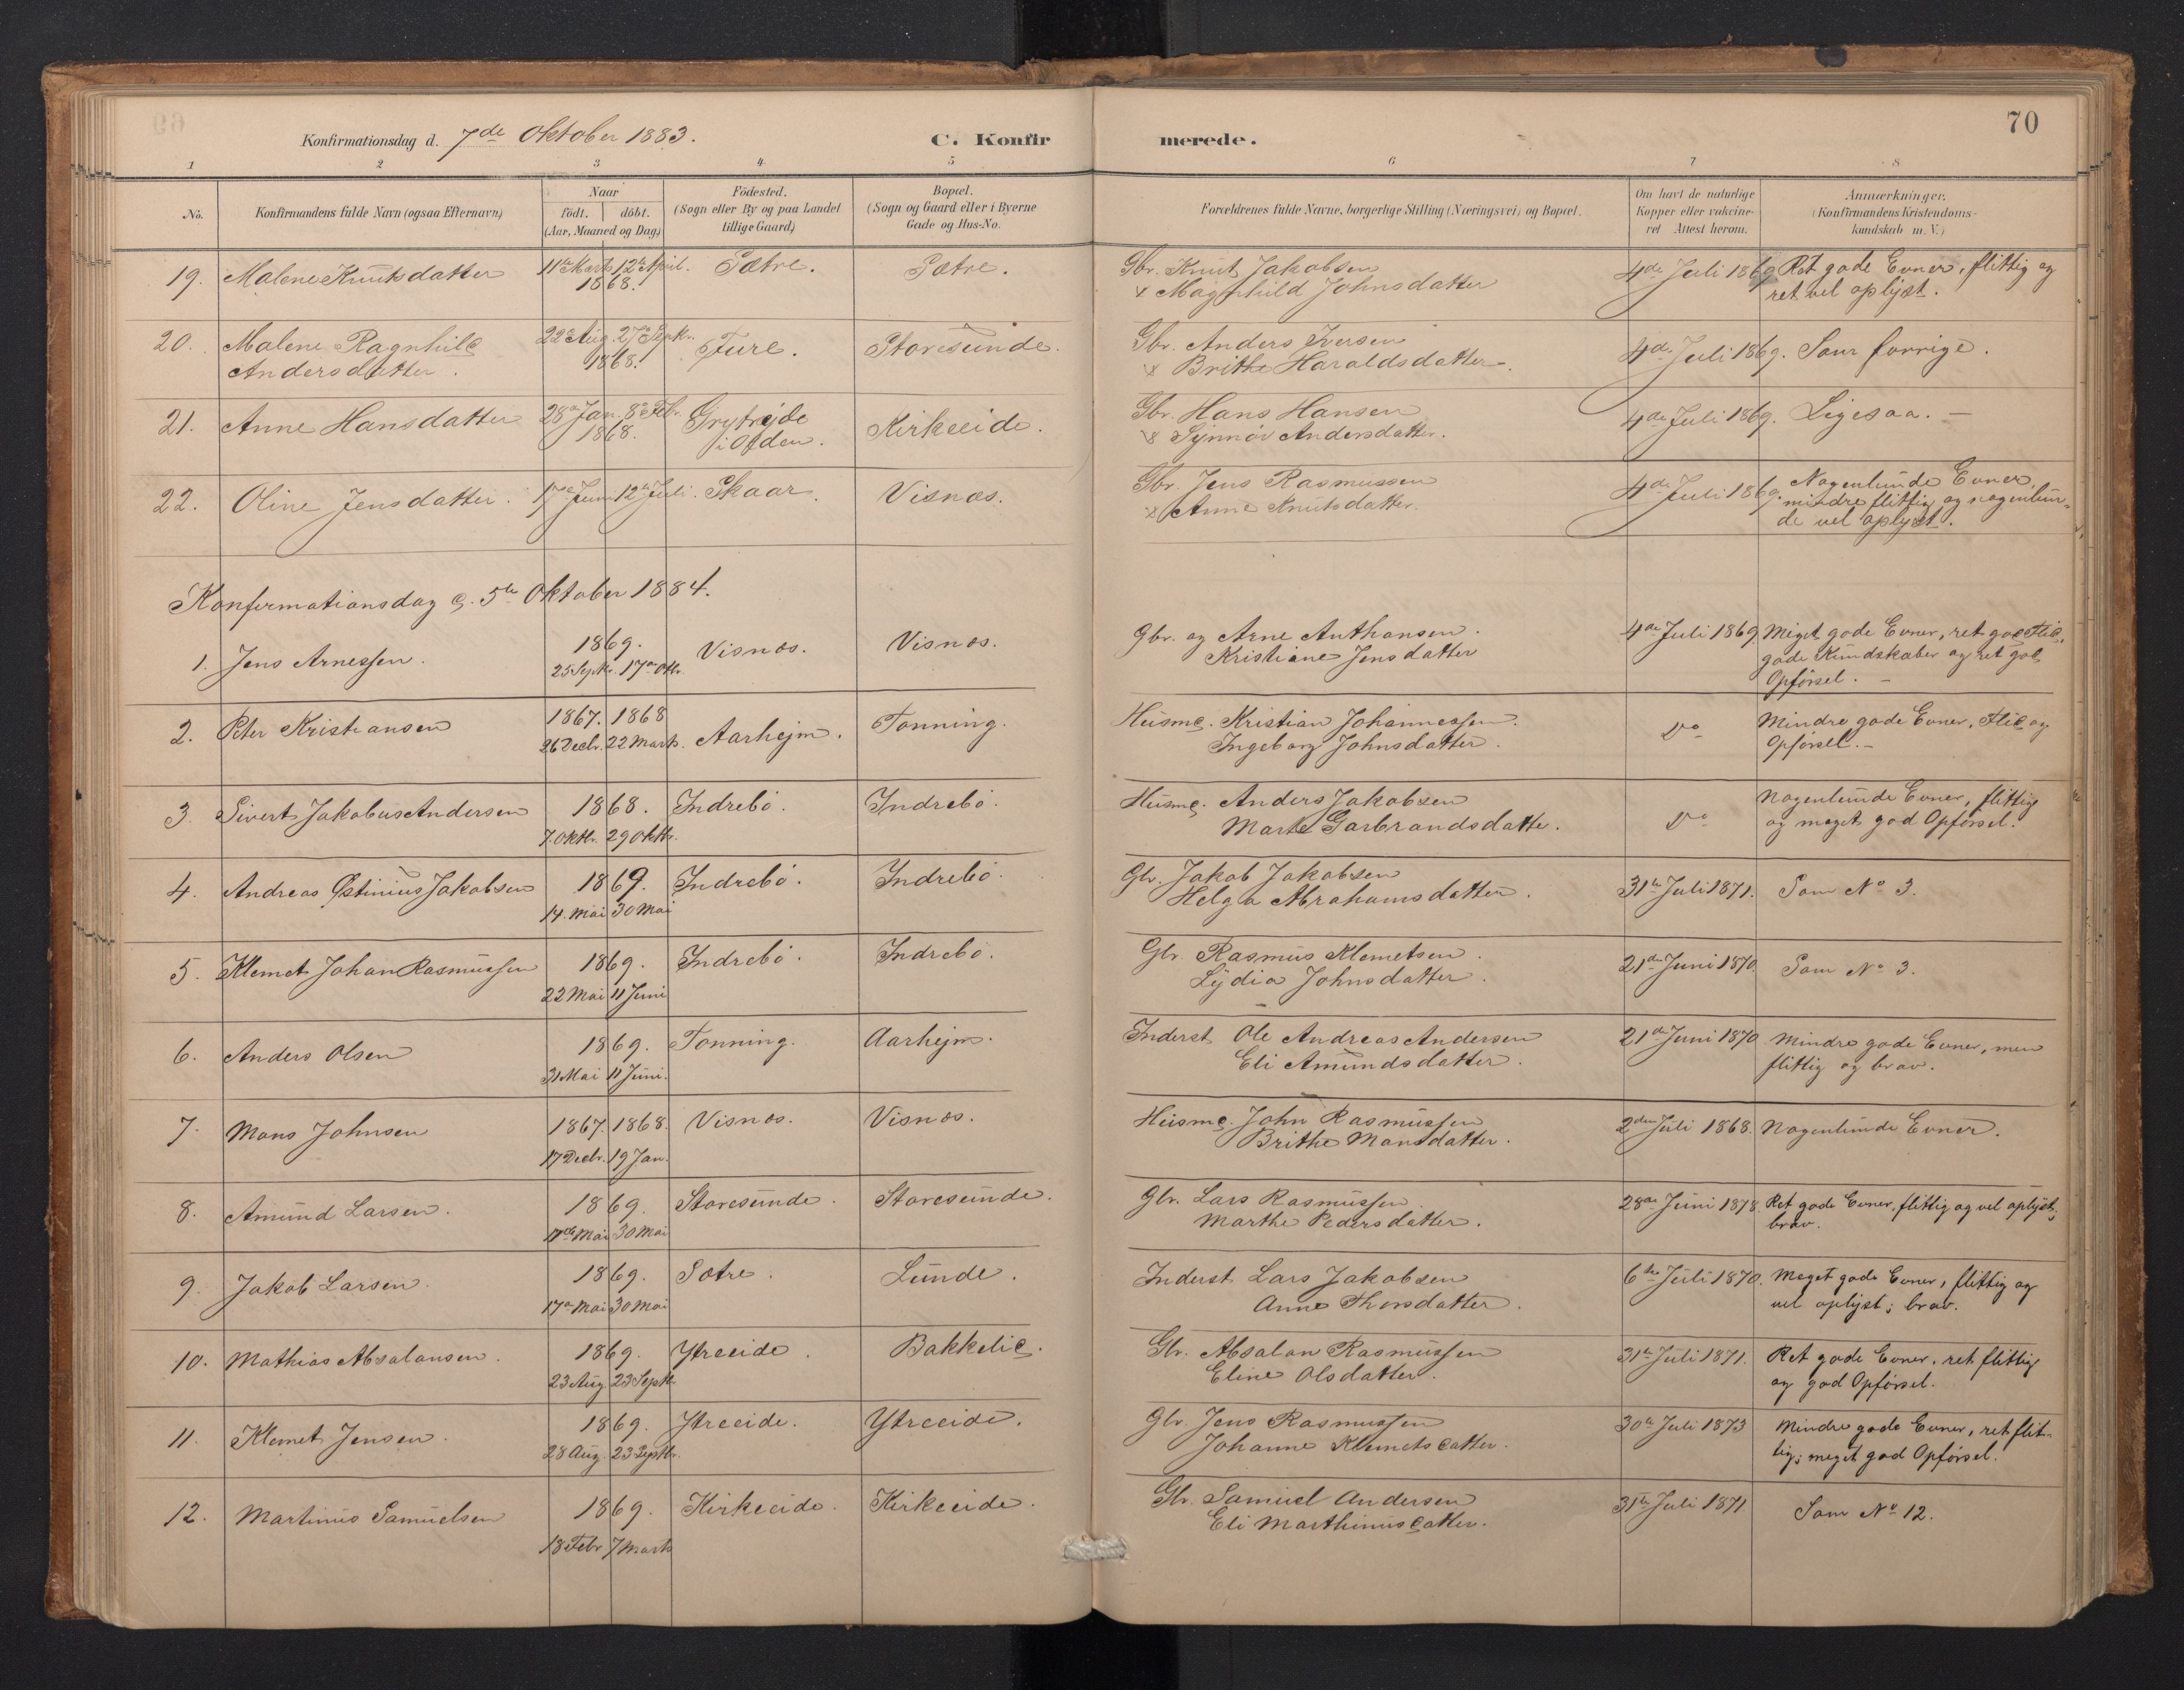 70
Konfirmationsdag d. 7de Oktober 1883.
C. Konfirmerede.
1 2 3 4 5 6 7 8
No.
Konfirmandens fulde Navn (ogsaa Efternavn)
Naar
födt. döbt.
(Aar, Maaned og Dag)
Födested.
(Sogn eller By og paa Landet
tillige Gaard)
Bopæl.
(Sogn og Gaard eller i Byerne
Gade og Hus-No.
Forældrenes fulde Navne, borgerlige Stilling (Næringsvei) og Bopæl.
Om havt de naturlige
Kopper eller vakcine-
ret Attest herom.
Anmærkninger.
(Konfirmandens Kristendoms-
kundskab m. V.)
19. Malene Knutsdatter 11te Marts 12te April. 1868. Sætre. Sætre. Gbr. Knut Jakobsen
& Magnhild Johnsdatter 4de Juli 1869 Ret gode Evner, flittig og
ret vel oplyst.
20. Malene Ragnhild
Andersdatter. 22de Aug. 27de Septr. 1868. Fure. Storesunde. Gbr. Anders Iversen
& Brithe Haraldsdatter. 4de Juli 1869. Som forrige.
21. Anne Hansdatter 28de Jan. 8de Febr. 1868. Grytrejde
i Olden. Kirkeeide. Gbr. Hans Hansen
& Synnøv Andersdatter. 4de Juli 1869. Ligesaa. —
22. Oline Jensdatter. 17de Juni 12te Juli. Skaar. Visnæs. Gbr. Jens Rasmussen
& Anne Knutsdatter. 4de Juli 1869. Nogenlunde Evner,
mindre flittig og nogenlun-
de vel oplyst.
Konfirmationsdag d. 5te Oktober 1884.
1. Jens Arnessen. 1869.
25 Septr. 17de Oktr. Visnæs. Visnæs. Gbr. og Arne Anthonsen.
Kristiane Jensdatter 4de Juli 1869. Meget gode Evner, ret god Flid,
gode Kundskaber og ret god
Opførsel. —
2. Peter Kristiansen 1867. 1868
26 Decbr. 22 Marts. Aarhejm. Tonning. Husmd. Kristian Johannessen.
Ingeborg Johnsdatter. Do Mindre gode Evner, Flid og
Opførsel. —
3. Sivert Jakobus Andersen 1868.
7. Oktbr. 29 Oktbr. Indrebö. Indrebö. Husmd. Anders Jakobsen
Marte Garbrandsdatter. Do Nogenlunde Evner, flittig
og meget god Opførsel.
4. Andreas Østinius Jakobsen 1869.
14. Mai 30 Mai Indrebö. Indrebö. Gbr. Jakob Jakobsen
Helga Abrahamsdatter. 31te Juli 1871. Som No 3.
5. Klemet Johan Rasmussen 1869.
22 Mai 11 Juni Indrebö. Indrebö. Gbr. Rasmus Klemetsen.
Lydia Johnsdatter. 21de Juni 1870. Som No 3.
6. Anders Olsen 1869.
31 Mai 11 Juni. Tonning. Aarhejm. Inderst Ole Andreas Andersen
Eli Amundsdatter. 21de Juni 1870 Mindre gode Evner, men
flittig og brav.
7. Mons Johnsen 1867. 1868.
17 Decbr. 19 Jan. Visnæs. Visnæs. Husmd. John Rasmussen
Brithe Monsdatter. 2den Juli 1868. Nogenlunde Evner.
8. Amund Larsen. 1869.
17de Mai 30 Mai Storesunde. Storesunde. Gbr. Lars Rasmussen
Marthe Pedersdatter. 28de Juni 1878. Ret gode Evner, flittig og vel oplyst;
brav.
9. Jakob Larsen. 1869.
17de Mai 30 Mai Sætre. Lunde. Inderst Lars Jakobsen
Anne Thorsdatter. 6te Juli 1870. Meget gode Evner, flittig og
vel oplyst; brav.
10. Mathias Absalonsen. 1869.
23 Aug. 23 Septbr. Ytreeide. Bakkelid. Gbr. Absalon Rasmussen
Eline Olsdatter. 31te Juli 1871. Ret gode Evner, ret flittig
og god Opførsel.
11. Klemet Jensen. 1869.
28 Aug. 23 Septbr. Ytreeide. Ytreeide. Gbr. Jens Rasmussen
Johanne Klemetsdatter. 30te Juli 1873 Mindre gode Evner, ret flit-
tig; meget god Opførsel.
12. Martinus Samuelsen 1869.
18 Febr 7 Marts Kirkeeide. Kirkeeide. Gbr. Samuel Andersen
Eli Marthinusdatter. 31te Juli 1871 Som No 12.